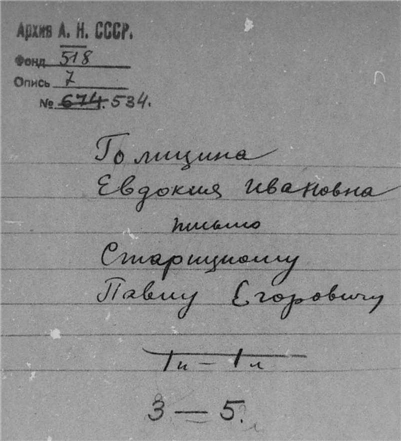 Архив А. Н. СССР.
Фонд 518
Опись 7
№ 674. 534.
Голицина
Евдокия Ивановна
письмо
Старицкому
Павлу Егоровичу
1п – 1л
3 — 5.